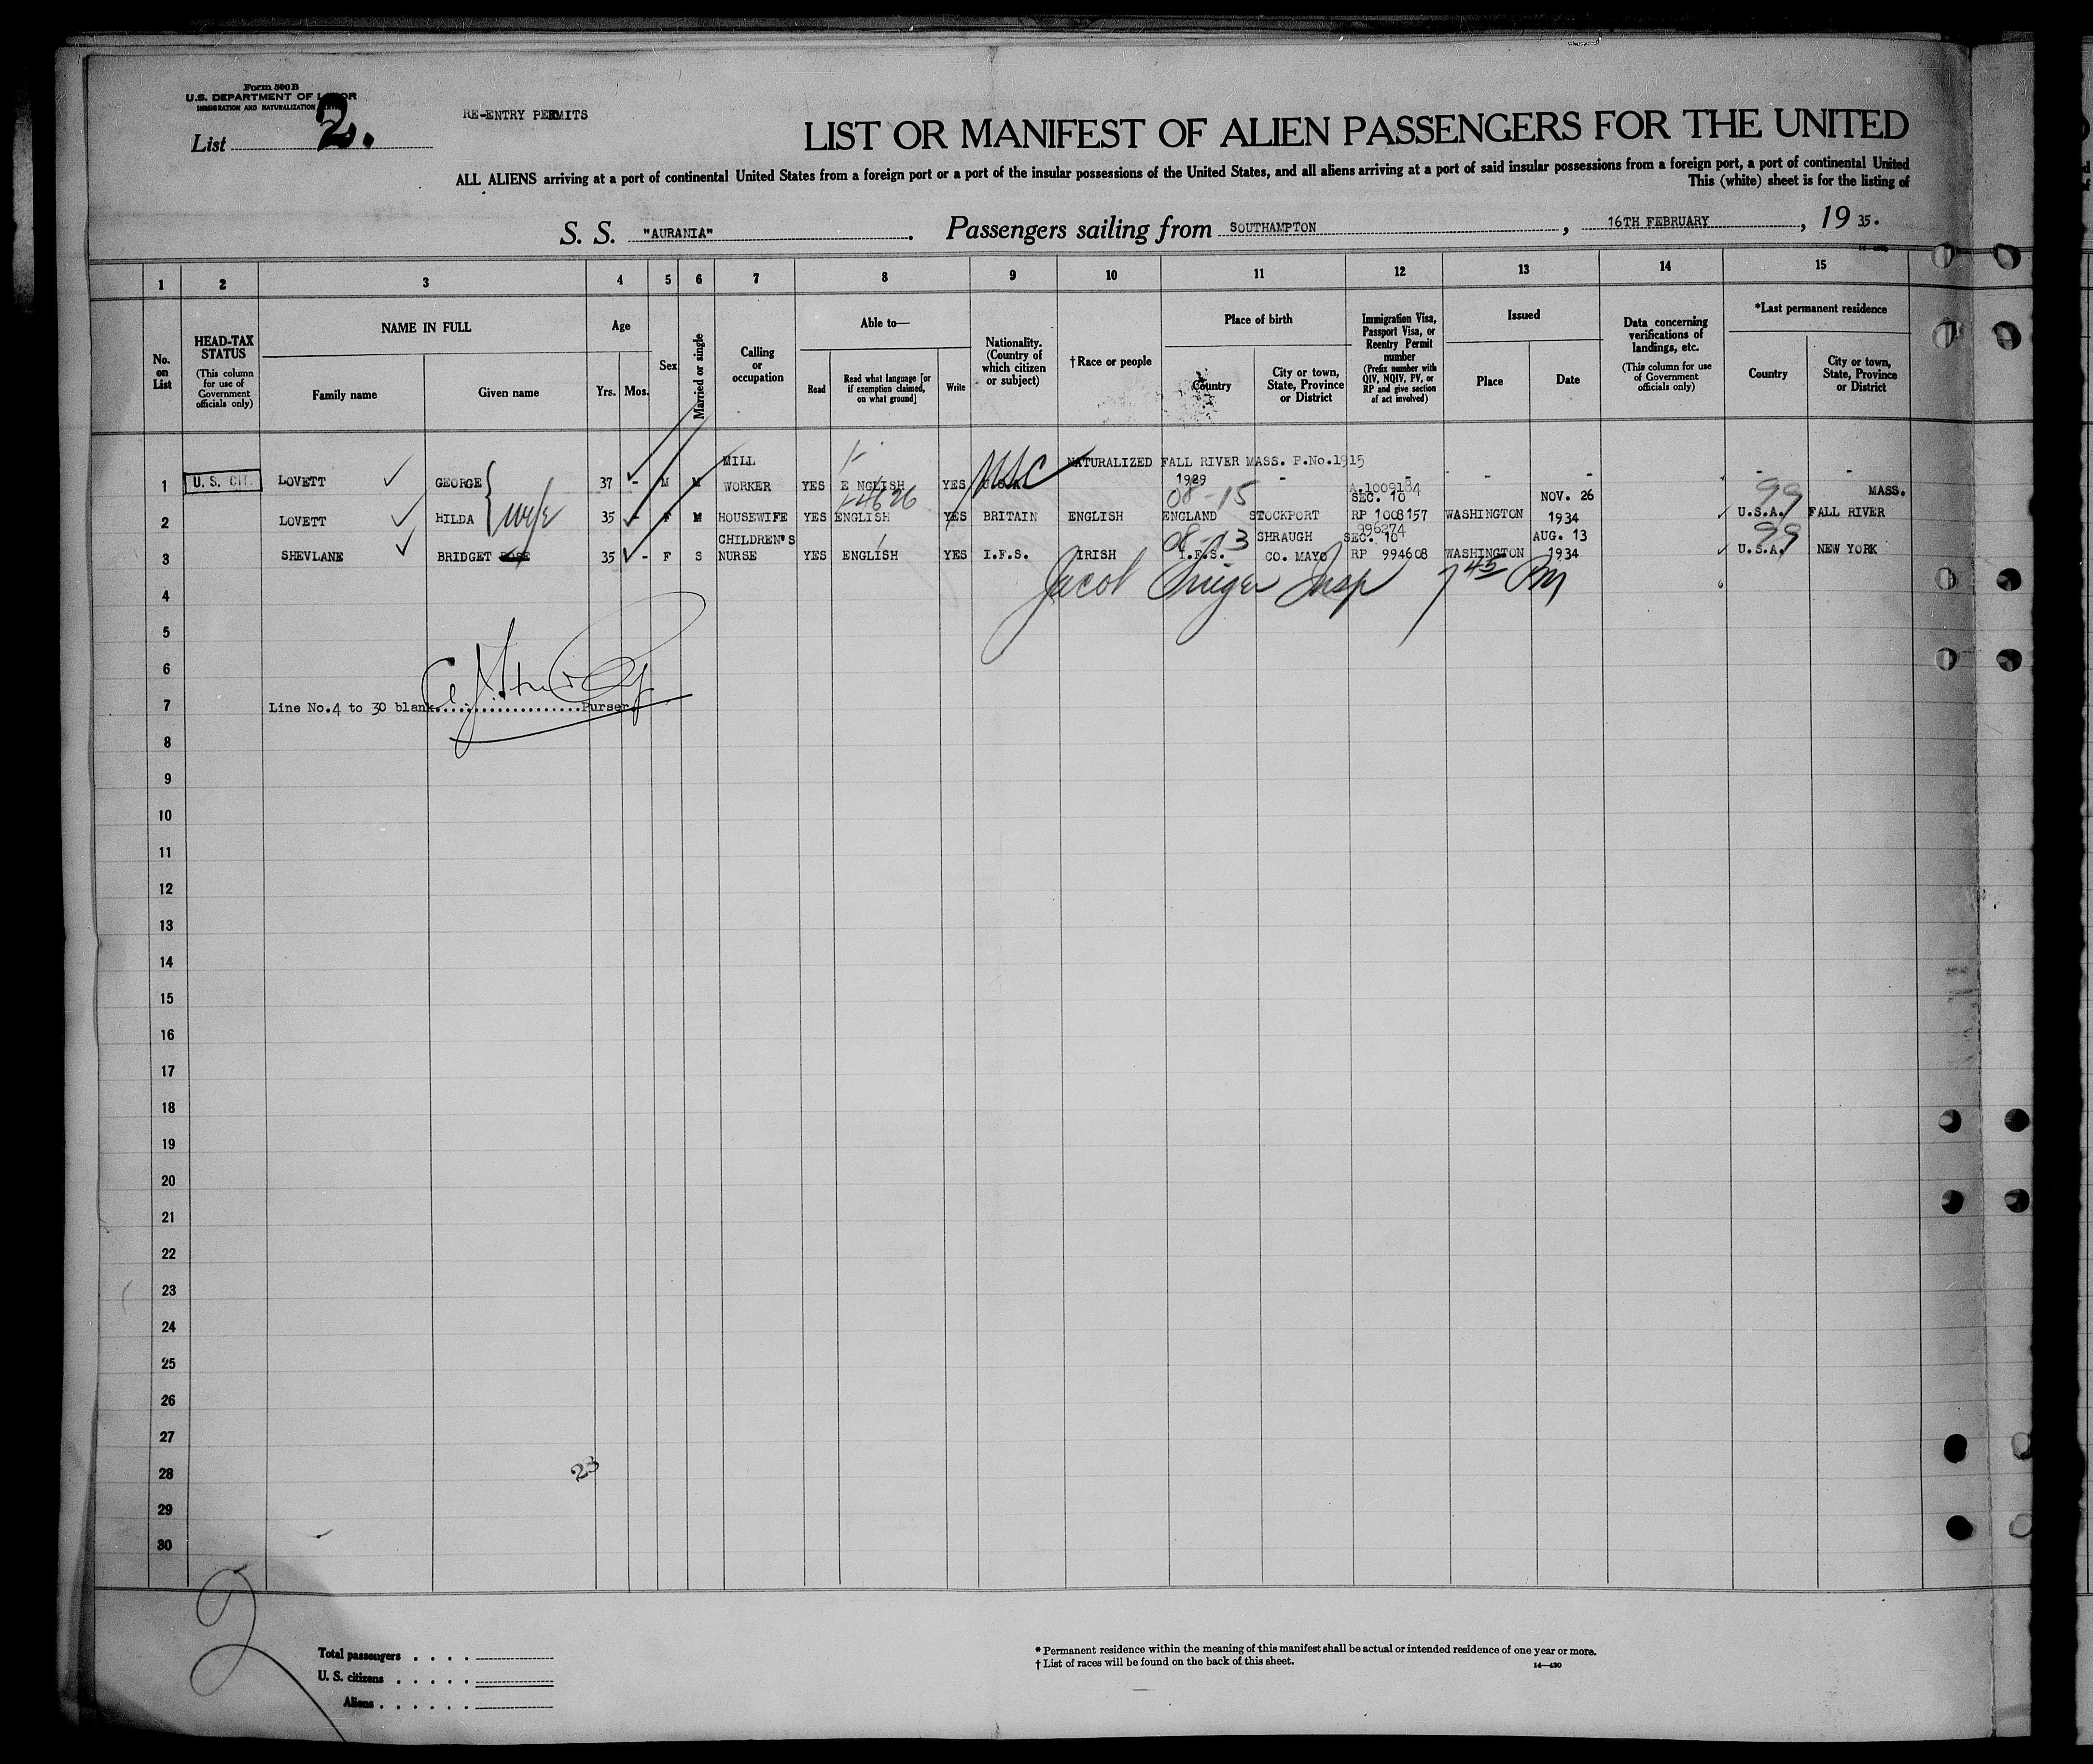 Form 500 B
U.S. DEPARTMENT OF LABOR
IMMIGRATION AND NATURALIZATION
List 2.
RE-ENTRY PERMITS
LIST OR MANIFEST OF ALIEN PASSENGERS FOR THE UNITED
ALL ALIENS arriving at a port of continental United States from a foreign port or a port of the insular possessions of the United States, and all aliens arriving at a port of said insular possessions from a foreign port, a port of continental United
This (white) sheet is for the listing of
S. S. "AURANIA". Passengers sailing from SOUTHAMPTON, 16TH FEBRUARY, 19 35.
1 2 3 4 5 6 7 8 9 10 11 12 13 14 15
No. on List
HEAD-TAX STATUS
(This column for use of Government officials only)
NAME IN FULL
Family name Given name
Age
Yrs. Mos.
Sex
Married or single
Calling or occupation
Able to—
Read
Read what language [or if exemption claimed, on what ground]
Write
Nationality. (Country of which citizen or subject)
†Race or people
Place of birth
Country
City or town, State, Province or District
Immigration Visa, Passport Visa, or Reentry Permit number
(Prefix number with QIV, NQIV, PV, or RP and give section of act involved)
Issued
Place Date
Data concerning verifications of landings, etc.
(This column for use of Government officials only)
*Last permanent residence
Country
City or town, State, Province or District
MILL NATURALIZED FALL RIVER MASS. P.No.1915
1 U. S. CIT. LOVETT GEORGE 37 - M M WORKER YES E NGLISH YES USC 1929 - - - - - -
wife
1-4626 08-15 A.1009184
SEC. 10 NOV. 26 99 MASS.
2 LOVETT HILDA 35 - F M HOUSEWIFE YES ENGLISH YES BRITAIN ENGLISH ENGLAND STOCKPORT RP 1008157 WASHINGTON 1934 U.S.A. FALL RIVER
996274
CHILDREN'S 08-13 SHRAUGH SEC. 10 AUG. 13 99
3 SHEVLANE BRIDGET ROSE 35 - F S NURSE YES ENGLISH YES I.F.S. IRISH I.F.S. CO. MAYO RP 994608 WASHINGTON 1934 U.S.A. NEW YORK
4 Jacob Insp 7 45 PM
5
6
7 Line No.4 to 30 blank....................Purser.
8
9
10
11
12
13
14
15
16
17
18
19
20
21
22
23
24
25
26
27
28 23
29
30
2
Total passengers . . . .
U. S. citizens . . . . .
Aliens . . . . . .
* Permanent residence within the meaning of this manifest shall be actual or intended residence of one year or more.
† List of races will be found on the back of this sheet.
14—430